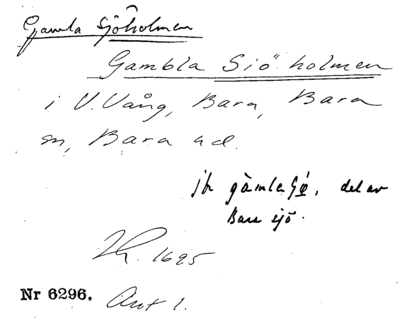 Gamla Sjöholmen
Gambla Siö holmen
i V. Vång, Bara, Bara
sn, Bara hd.
jfr gamla Sjö, del av
Bara sjö.
1695
Nr 6296. Avt 1.